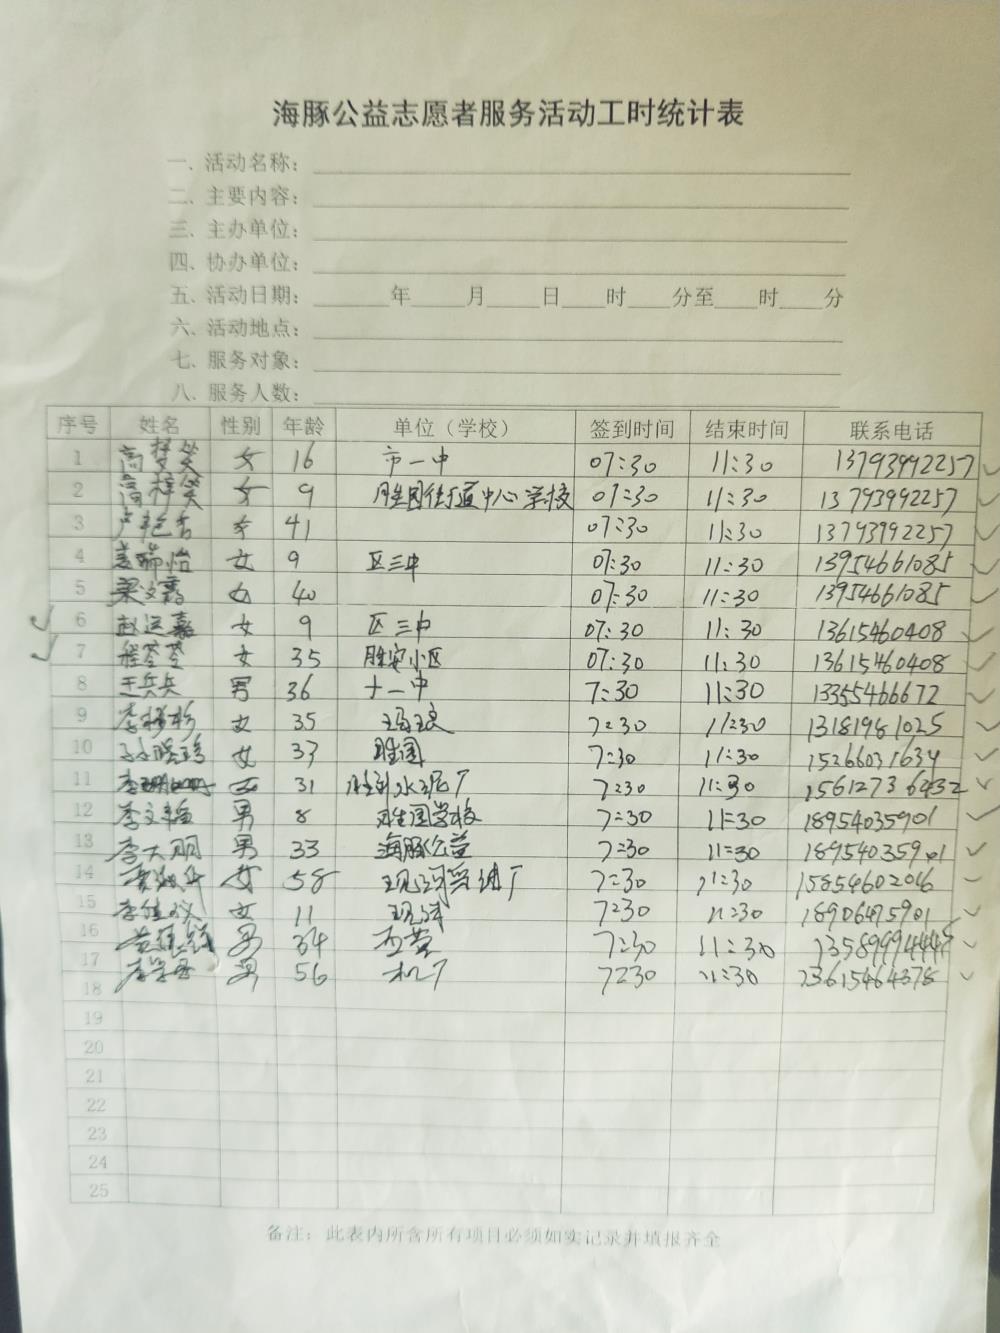 海豚公益志愿者服务活动工时统计表
一、活动名称：
二、主要内容：
三、主办单位：
四、协办单位：
五、活动日期： 年 月 日 时 分至 时 分
六、活动地点：
七、服务对象：
八、服务人数：
序号 姓名 性别 年龄 单位（学校） 签到时间 结束时间 联系电话
1 高梦笑 女 16 市一中 07:30 11:30 13793992257
2 高梓笑 女 9 胜园街道中心学校 07:30 11:30 13793992257
3 女 41 07:30 11:30 13793992257
4 姜瑞怡 女 9 区三中 07:30 11:30 13954661085
5 梁文霞 女 40 07:30 11:30 13954661085
6 赵运嘉 女 9 区三中 07:30 11:30 13615460408
7 程苓苓 女 35 胜安小区 07:30 11:30 13615460408
8 王兵兵 男 36 十一中 7:30 11:30 13355466672
9 李杉杉 女 35 7:30 11:30 13181981025
10 女 33 胜园 7:30 11:30 15266031634
11 女 31 胜利水泥厂 7:30 11:30 15612736432
12 李文 男 8 胜园学校 7:30 11:30 18954035901
13 李大朋 男 33 海豚公益 7:30 11:30 18954035901
14 女 58 7:30 11:30 15854602046
15 李佳 女 11 现河 7:30 11:30 18906475901
16 男 34 7:30 11:30
17 男 56 机厂 7:30 11:30 13615464378
18
19
20
21
22
23
24
25
备注：此表内所含所有项目必须如实记录并填报齐全